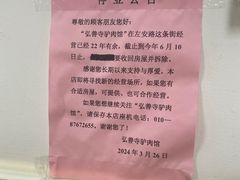 停业公告
尊敬的顾客朋友您好：
“弘善寺驴肉馆”在左安路这条街经
营已经22年有余，截止到今年6月10
日止，要收回房屋并拆除。
感谢您长期以来支持与厚爱，本
店即将寻找新的经营场所，如果您有
合适房屋，可提供、也可合作经营。
如果您想继续关注“弘善寺驴肉
馆”，请保存本店座机电话：010—
87672655，谢谢您了！
弘善寺驴肉馆
2024年3月26日